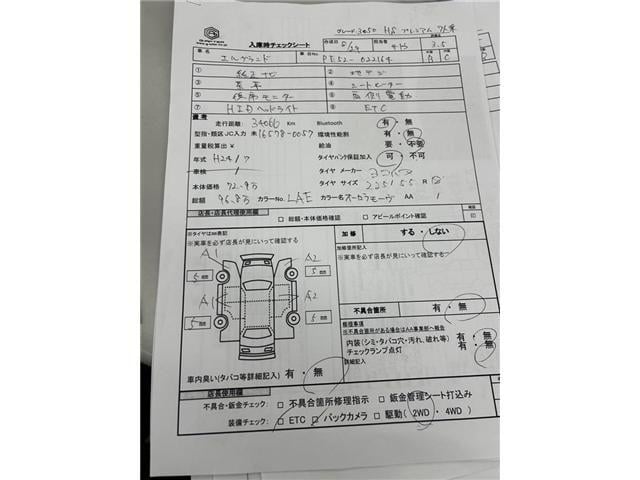 グレード 3450 HS プレミアム 7人乗
入庫時チェックシート 作成日 8/29 担当者 3.5
車名 エルグランド 車台No. PE52-022164 A C
① 純正ナビ ② 地デジ
③ 黒革 ④ シートヒーター
⑤ 後席モニター ⑥ 両側電動
⑦ HIDヘッドライト ⑧ ETC
備考
走行距離: 34066 Km Bluetooth 有・無
型指・類区JC入力 未 16578-0057 環境性能割 有・無
重量税算出¥ 給油 要・不要
年式 H24/7 タイヤパンク保証加入 可・不可
車検 / タイヤ メーカー ヨコハマ
本体価格 72.9万 タイヤ サイズ 225/55 R
総額 96.8万 カラーNo. LAE カラー名 オーロラモーヴ AA /
店長・店長代理使用欄 □ 総額・本体価格確認 □ アピールポイント確認 印
※タイヤは㎜表記
※実車を必ず店長が見にいって確認する
加修 する・しない
加修箇所記入
※実車を必ず店長が見にいって確認する
A1 A2
5㎜ 5㎜
A1 A2
5㎜ 5㎜
不具合箇所 有・無
修理事項
※不具合箇所がある場合はAA事業部へ報告
内装(シミ・タバコ穴・汚れ、破れ等) 有・無
チェックランプ点灯 有・無
詳細記入
車内臭い(タバコ等詳細記入) 有・無
店長使用欄
不具合・鈑金チェック: □ 不具合箇所修理指示 □ 鈑金管理シート打込み
装備チェック: □ ETC □ バックカメラ □ 駆動(2WD・4WD)